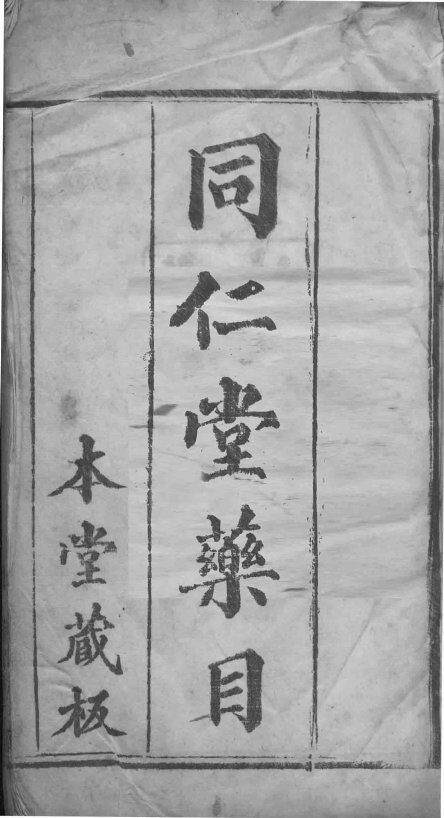 同仁堂藥目
本堂蔵板